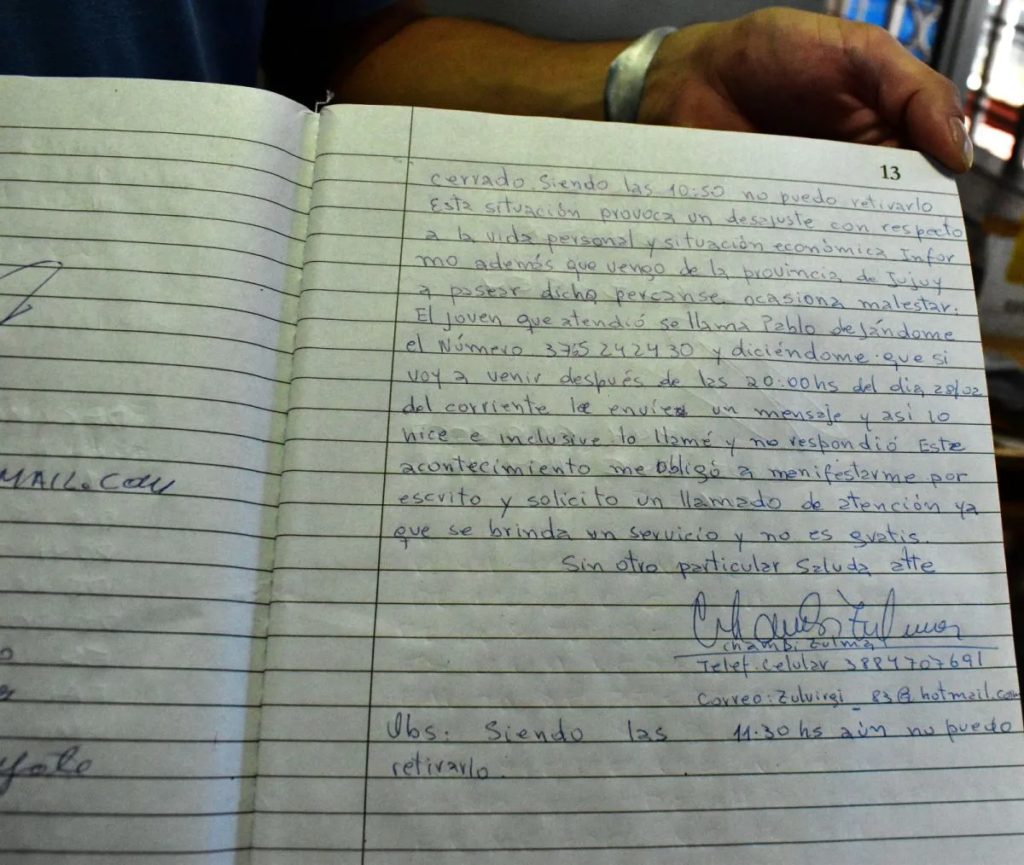 13
cerrado Siendo las 10:50 no puedo retirarlo
Esta situación provoca un desajuste con respecto
a la vida personal y situación económica Infor
mo además que vengo de la provincia de Jujuy
a pasear dicho percanse ocasiona malestar.
El joven que atendió se llama Pablo dejándome
el Número 3765242430 y diciéndome que si
voy a venir después de las 20:00hs del día 28/02
del corriente le envíe un mensaje y así lo
hice e inclusive lo llamé y no respondió Este
acontecimiento me obligó a menifestarme por
escrito y solicito un llamado de atención ya
que se brinda un servicio y no es gratis.
Sin otro particular Saluda atte
Chambi Zulma
Telef. Celular 3884707691
Correo: Zulvirgi_83@hotmail.com
Obs: Siendo las 11:30 hs aún no puedo
retirarlo.
MAIL.COM